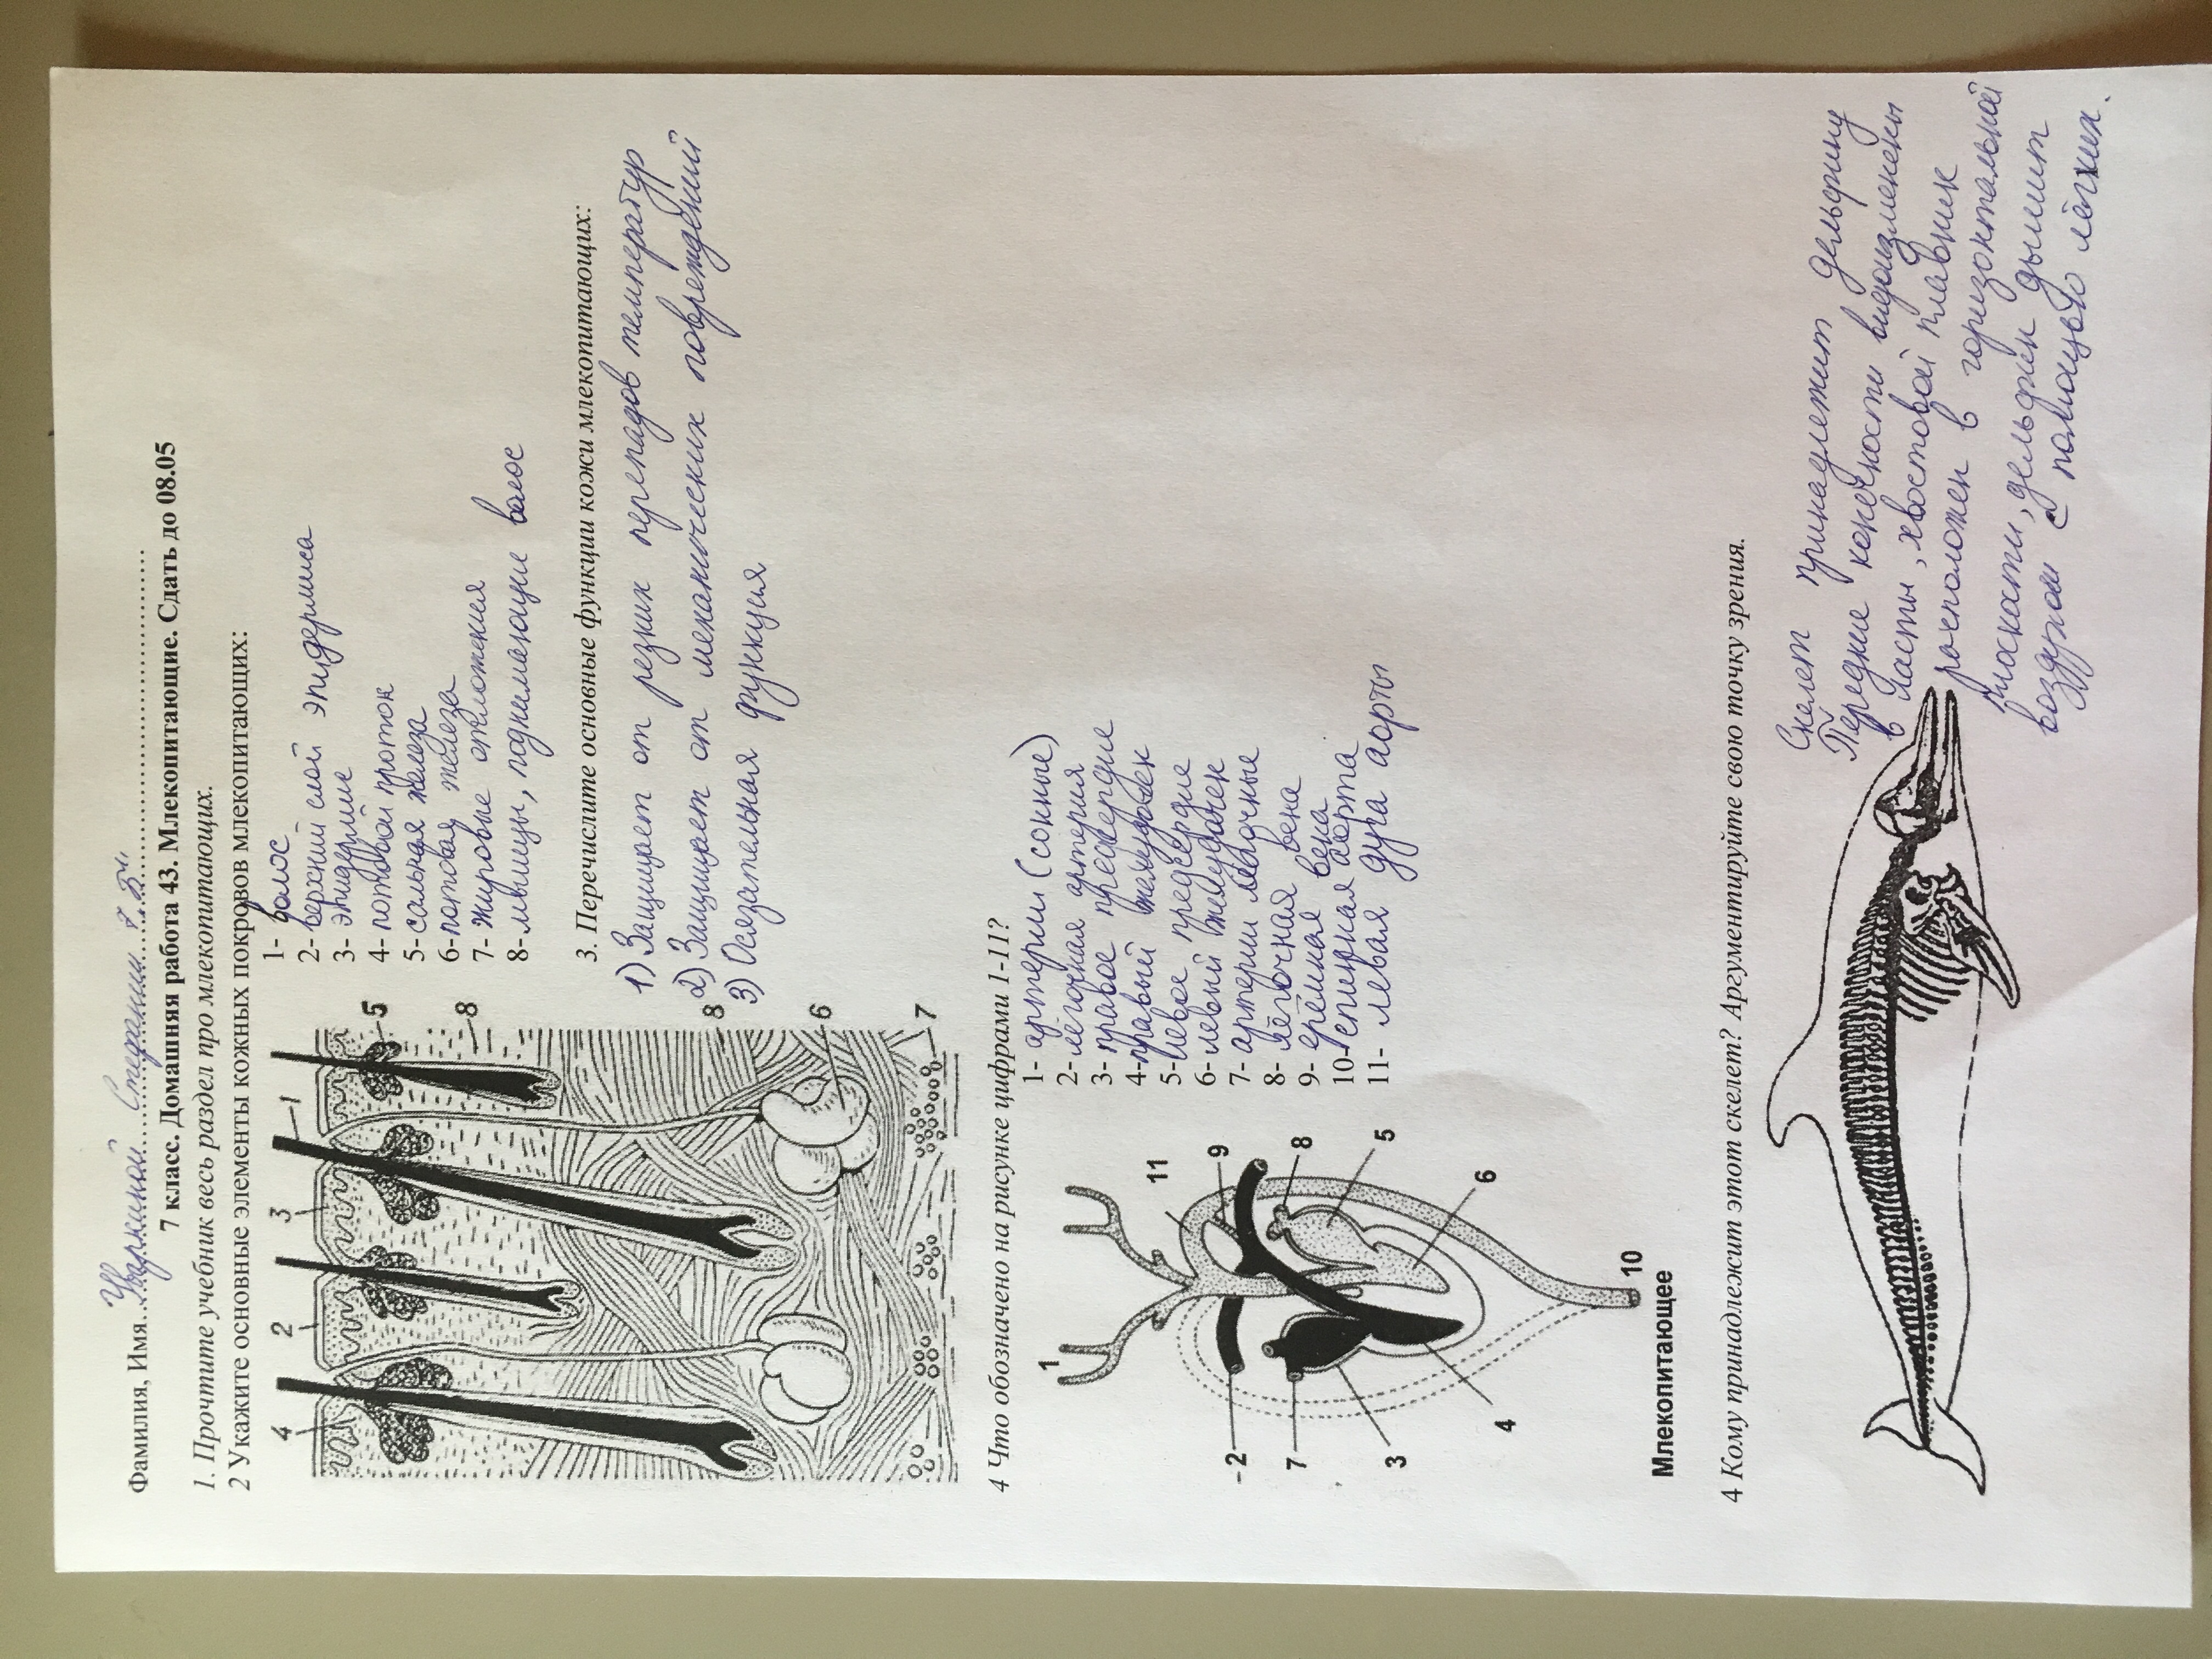 Фамилия, Имя.. Стефания 7 "Б"
7 класс. Домашняя работа 43. Млекопитающие. Сдать до 08.05
1. Прочтите учебник весь раздел про млекопитающих.
2 Укажите основные элементы кожных покровов млекопитающих:
1- волос
2- верхний слой эпидермиса
3- эпидермис
4- потовый проток
5- сальная железа
6- потовая железа
7- жировые отложения
8- мышцы, поднимающие волос
4 2 3 1 5
8
8
6
7
3. Перечислите основные функции кожи млекопитающих:
1) Защищает от резких перепадов температур
2) Защищает от механических повреждений
3) Осязательная функция
4 Что обозначено на рисунке цифрами 1-11?
1- артерии (сонные)
2- лёгочная артерия
3- правое предсердие
4- правый желудочек
5- левое предсердие
6- левый желудочек
7- артерии лёгочные
8- лёгочная вена
9- ярёмная вена
10- спинная аорта
11- левая дуга аорты
1
11
2
9
7
8
3
5
4
6
10
Млекопитающее
4 Кому принадлежит этот скелет? Аргументируйте свою точку зрения.
Скелет принадлежит дельфину
Передние конечности видоизменены
в ласты, хвостовой плавник
расположен в горизонтальной
плоскости, дельфин дышит
воздухом с помощью лёгких.